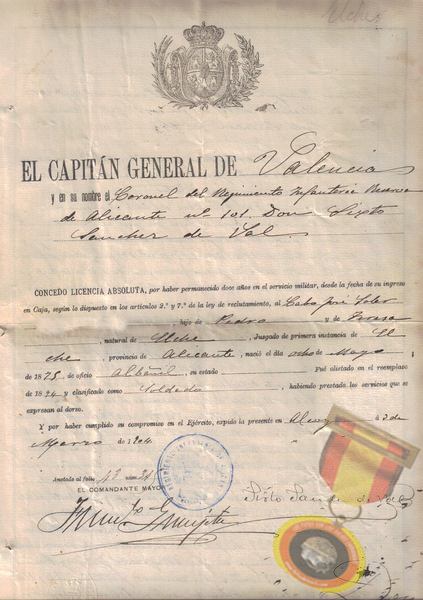 Elche
EL CAPITÁN GENERAL DE Valencia
y en su nombre el Coronel del Regimiento Infanteria Reserva
de Alicante nº 101, Don Sixto
Sanchez de Val.
CONCEDO LICENCIA ABSOLUTA, por haber permanecido doce años en el servicio militar, desde la fecha de su ingreso
en Caja, según lo dispuesto en los artículos 2.º y 7.º de la ley de reclutamiento, al Cabo José Soler
hijo de Pedro y de Teresa
, natural de Elche, Juzgado de primera instancia de El
che, provincia de Alicante, nació el día ocho de Mayo
de 1875, de oficio Albañil, su estado Fué alistado en el reemplazo
de 1894 y clasificado como Soldado, habiendo prestado los servicios que se
expresan al dorso.
Y por haber cumplido su compromiso en el Ejército, expido la presente en
Marzo de 190
Anotado al folio 43 núm.
EL COMANDANTE MAYOR
Sixto Sanchez de Val